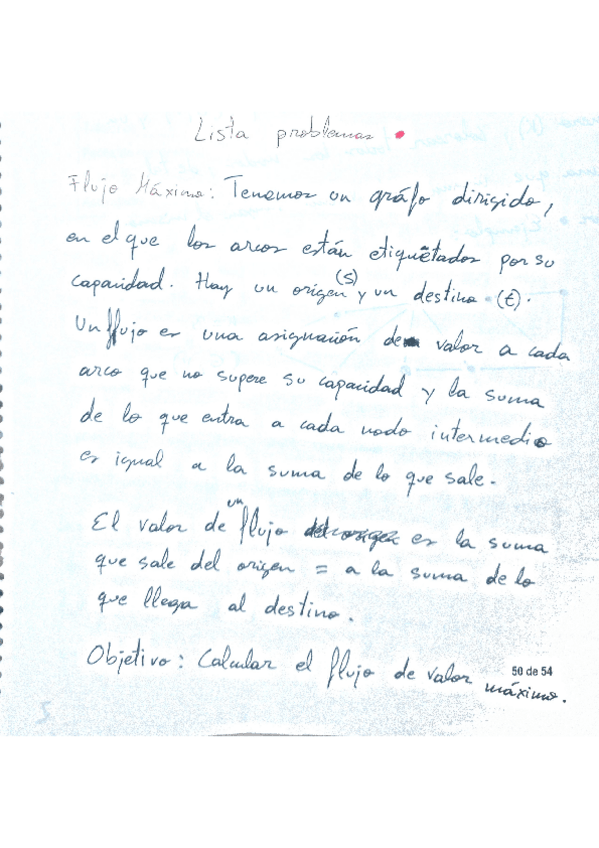 Lista problemas
Flujo Máximo: Tenemos un gráfo dirigido,
en el que los arcos están etiquetados por su
capacidad. Hay un origen (s) y un destino (t).
Un flujo es una asignación de valor a cada
arco que no supere su capacidad y la suma
de lo que entra a cada nodo intermedio
es igual a la suma de lo que sale.
El valor de un flujo es la suma
que sale del origen = a la suma de lo
que llega al destino.
Objetivo: Calcular el flujo de valor máximo.
50 de 54